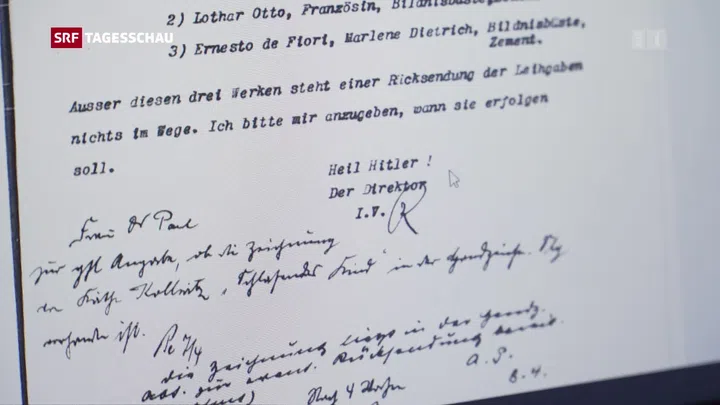 SRF TAGESSCHAU
2) Lothar Otto, Französin,
3) Ernesto de Fiori, Marlene Dietrich, Bildnisbüste,
Zement.
Ausser diesen drei Werken steht einer Rücksendung der Leihgaben
nichts im Wege. Ich bitte mir anzugeben, wann sie erfolgen
soll.
Heil Hitler !
Der Direktor
I.V.
Frau Dr Paul
zur gfl Angabe, ob die Zeichnung
der Käthe Kollwitz „Schlafendes Kind" in der
vorhanden ist.
Re 7/4
die Zeichnung liegt in der
Rücksendung bereit.
A. P.
8. 4.